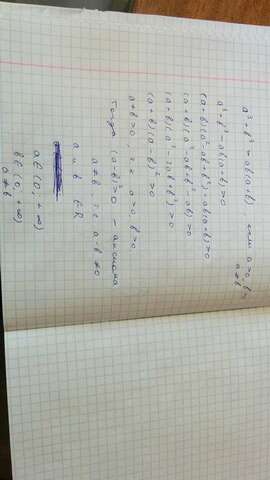 a³ + b³ > ab(a+b), если a>0, b>
a≠b
a³ + b³ - ab(a+b) > 0
(a+b)(a²-ab+b²) - ab(a+b) > 0
(a+b)(a²-ab+b²-ab) > 0
(a+b)(a²-2ab+b²) > 0
(a+b)(a-b)² > 0
a+b>0, т.к. a>0, b>0
тогда (a-b)²>0 - аксиома
a≠b т.е. a-b≠0
a и b ∈ R
a∈(0; +∞)
b∈(0; +∞)
a≠b